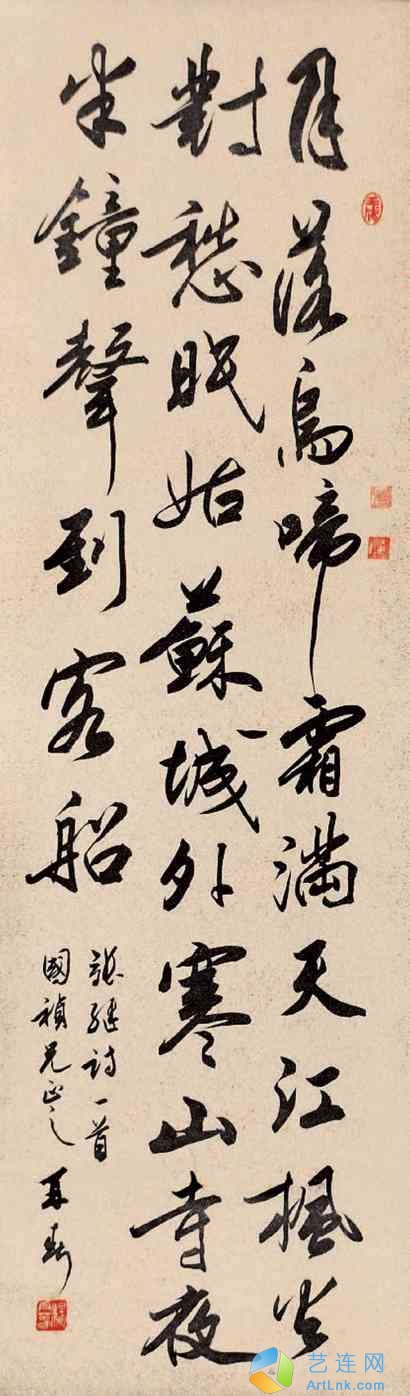 月落烏啼霜滿天江楓火
對愁眠姑蘇城外寒山寺夜
半鐘聲到客船
張継詩一首
國禎兄正之
艺连网
ArtLnk.com